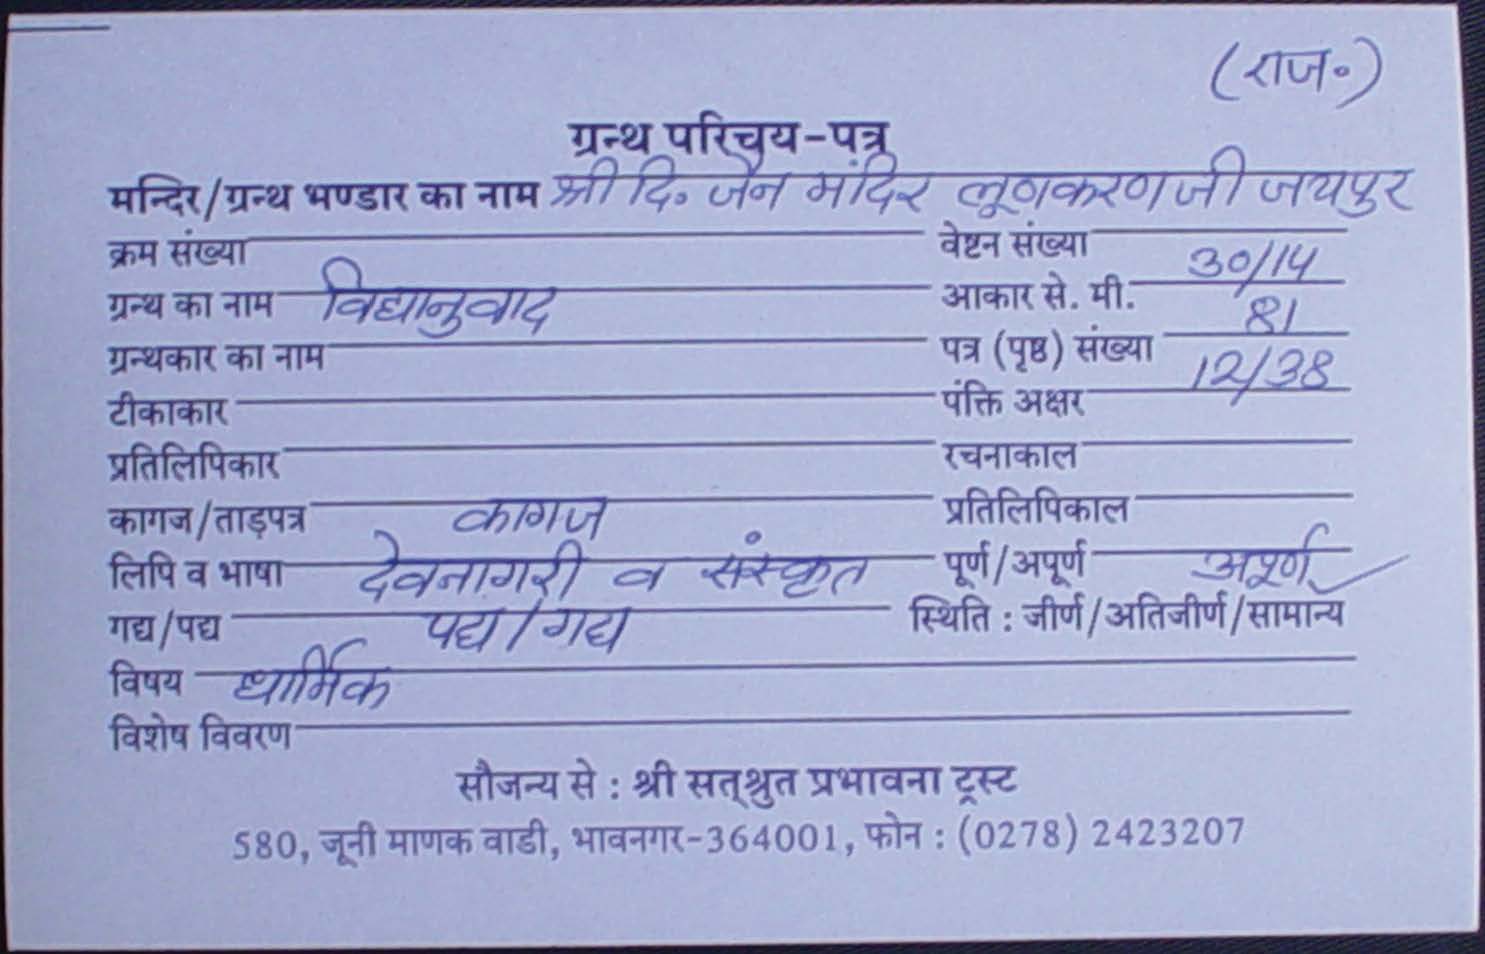 (राज०)
ग्रन्थ परिचय-पत्र
मन्दिर/ग्रन्थ भण्डार का नाम श्री दि. जैन मंदिर लूणकरणजी जयपुर
क्रम संख्या वेष्टन संख्या
ग्रन्थ का नाम विद्यानुवाद आकार से. मी. 30/14
ग्रन्थकार का नाम पत्र (पृष्ठ) संख्या 81
टीकाकार पंक्ति अक्षर 12/38
प्रतिलिपिकार रचनाकाल
कागज/ताड़पत्र कागज प्रतिलिपिकाल
लिपि व भाषा देवनागरी व संस्कृत पूर्ण/अपूर्ण अपूर्ण
गद्य/पद्य पद्य/गद्य स्थिति : जीर्ण/अतिजीर्ण/सामान्य
विषय धार्मिक
विशेष विवरण
सौजन्य से : श्री सत्श्रुत प्रभावना ट्रस्ट
580, जूनी माणक वाडी, भावनगर-364001, फोन : (0278) 2423207